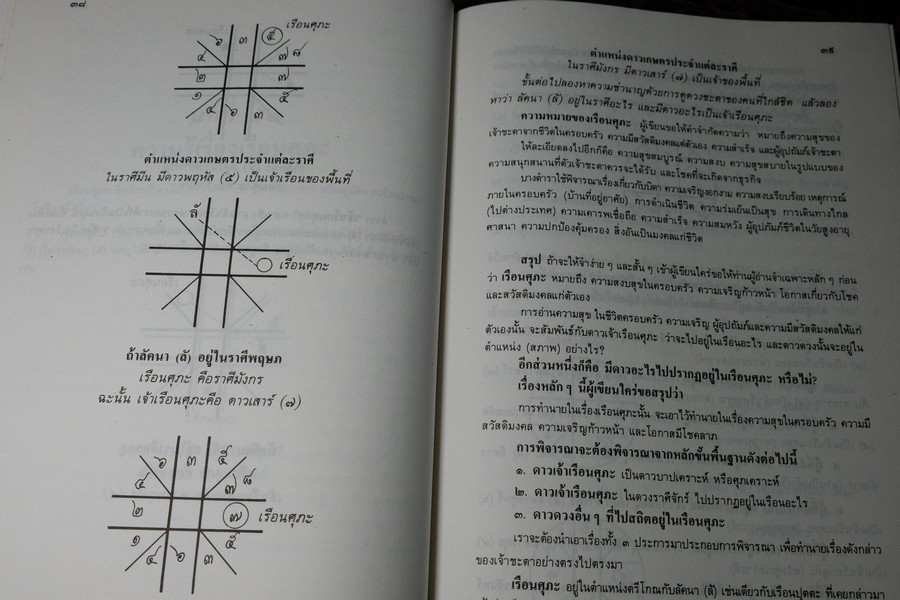 ๓๘
๖ ๓ ๕ เรือนศุภะ
๔ ๗ ๘
๒ ๗
๑ ๔ ๖ ๓ ๕
ตำแหน่งดาวเกษตรประจำแต่ละราศี
ในราศีมีน มีดาวพฤหัส (๕) เป็นเจ้าเรือนของพื้นที่
ลั
เรือนศุภะ
ถ้าลัคนา (ลั) อยู่ในราศีพฤษภ
เรือนศุภะ คือราศีมังกร
ฉะนั้น เจ้าเรือนศุภะคือ ดาวเสาร์ (๗)
๖ ๓ ๕
๔ ๗ ๘
๒ ๗ เรือนศุภะ
๑ ๔ ๖ ๓ ๕
๓๙
ตำแหน่งดาวเกษตรประจำแต่ละราศี
ในราศีมังกร มีดาวเสาร์ (๗) เป็นเจ้าของพื้นที่
ขั้นต่อไปลองหาความชำนาญด้วยการดูดวงชะตาของคนที่ใกล้ชิด แล้วลอง
หาว่า ลัคนา (ลั) อยู่ในราศีอะไร และมีดาวอะไรเป็นเจ้าเรือนศุภะ
ความหมายของเรือนศุภะ ผู้เขียนขอให้คำจำกัดความว่า หมายถึงความสุขของ
เจ้าชะตาจากชีวิตในครอบครัว ความมีสวัสดิมงคลแก่ตัวเอง ความสำเร็จ และผู้อุปถัมภ์เจ้าชะตา
ให้ละเอียดลงไปอีกก็คือ ความสุขสมบูรณ์ ความสงบ ความสุขสบายในรูปแบบของ
ความสนุกสนานที่ตัวเจ้าชะตาควรจะได้รับ และโชคที่จะเกิดจากธุรกิจ
บางตำราใช้พิจารณาเรื่องเกี่ยวกับบิดา ความเจริญงอกงาม ความสงบเรียบร้อย เหตุการณ์
ภายในครอบครัว (บ้านที่อยู่อาศัย) การดำเนินชีวิต ความร่มเย็นเป็นสุข การเดินทางไกล
(ไปต่างประเทศ) ความเคารพเชื่อถือ ความสำเร็จ ความสมหวัง ผู้อุปถัมภ์ชีวิตในวัยสูงอายุ
ศาสนา ความปกป้องคุ้มครอง สิ่งอันเป็นมงคลแก่ชีวิต
สรุป ถ้าจะให้จำง่าย ๆ และสั้น ๆ เข้าผู้เขียนใคร่ขอให้ท่านผู้อ่านจำเฉพาะหลัก ๆ ก่อน
ว่า เรือนศุภะ หมายถึง ความสงบสุขในครอบครัว ความเจริญก้าวหน้า โอกาสเกี่ยวกับโชค
และสวัสดิมงคลแก่ตัวเอง
การอ่านความสุข ในชีวิตครอบครัว ความเจริญ ผู้อุปถัมภ์และความมีสวัสดิมงคลให้แก่
ตัวเองนั้น จะสัมพันธ์กับดาวเจ้าเรือนศุภะ ว่าจะไปอยู่ในเรือนอะไร และดาวดวงนั้นจะอยู่ใน
ตำแหน่ง (สภาพ) อย่างไร?
อีกส่วนหนึ่งก็คือ มีดาวอะไรไปปรากฏอยู่ในเรือนศุภะ หรือไม่?
เรื่องหลัก ๆ นี้ผู้เขียนใคร่ขอสรุปว่า
การทำนายในเรื่องเรือนศุภะนั้น จะเอาไว้ทำนายในเรื่องความสุขในครอบครัว ความมี
สวัสดิมงคล ความเจริญก้าวหน้า และโอกาสมีโชคลาภ
การพิจารณาจะต้องพิจารณาจากหลักขั้นพื้นฐานดังต่อไปนี้
๑. ดาวเจ้าเรือนศุภะ เป็นดาวบาปเคราะห์ หรือศุภเคราะห์
๒. ดาวเจ้าเรือนศุภะ ในดวงราศีจักร์ ไปปรากฏอยู่ในเรือนอะไร
๓. ดาวดวงอื่น ๆ ที่ไปสถิตอยู่ในเรือนศุภะ
เราจะต้องนำเอาเรื่องทั้ง ๓ ประการมาประกอบการพิจารณา เพื่อทำนายเรื่องดังกล่าว
ของเจ้าชะตาอย่างตรงไปตรงมา
เรือนศุภะ อยู่ในตำแหน่งตรีโกณกับลัคนา (ลั) เช่นเดียวกับเรือนปุตตะ ที่เคยกล่าวมา